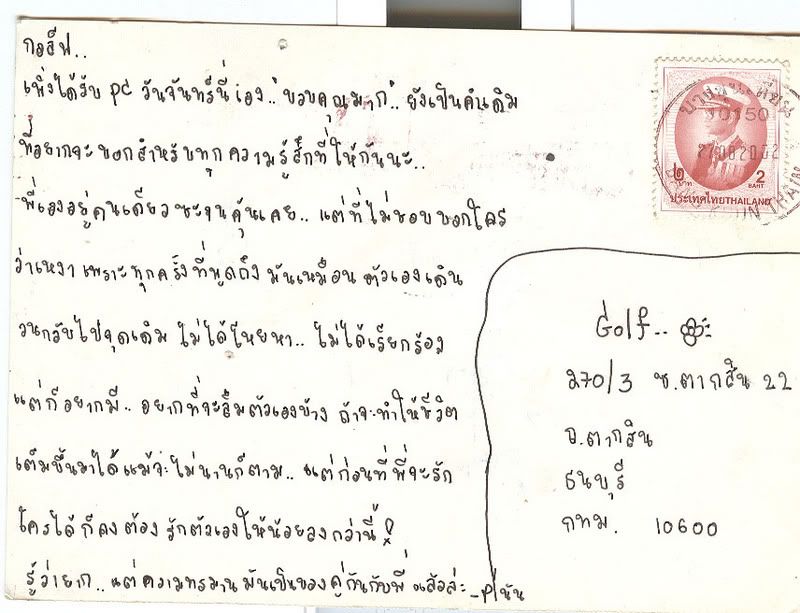 กอล์ฟ..
เพิ่งได้รับ pc วันจันทร์นี่เอง.. "ขอบคุณมาก".. ยังเป็นคำเดิม
ที่อยากจะบอกสำหรับทุกความรู้สึกที่ให้กันนะ..
พี่เองอยู่คนเดียวซะจนคุ้นเคย.. แต่ที่ไม่ชอบบอกใคร
ว่าเหงา เพราะทุกครั้งที่พูดถึง มันเหมือนตัวเองเดิน
วนกลับไปจุดเดิม ไม่ได้โหยหา.. ไม่ได้เรียกร้อง
แต่ก็อยากมี.. อยากที่จะลืมตัวเองบ้าง ถ้าจะทำให้ชีวิต
เต็มขึ้นมาได้แม้จะไม่นานก็ตาม.. แต่ก่อนที่พี่จะรัก
ใครได้ก็คงต้องรักตัวเองให้น้อยลงกว่านี้
รู้ว่ายาก.. แต่ความทรมานมันเป็นของคู่กันกับพี่แล้วล่ะ
10150
27 08 2002
๒ บาท
2 BAHT
ประเทศไทย THAILAND
Golf..
270/3 ซ.ตากสิน 22
ถ.ตากสิน
ธนบุรี
กทม. 10600